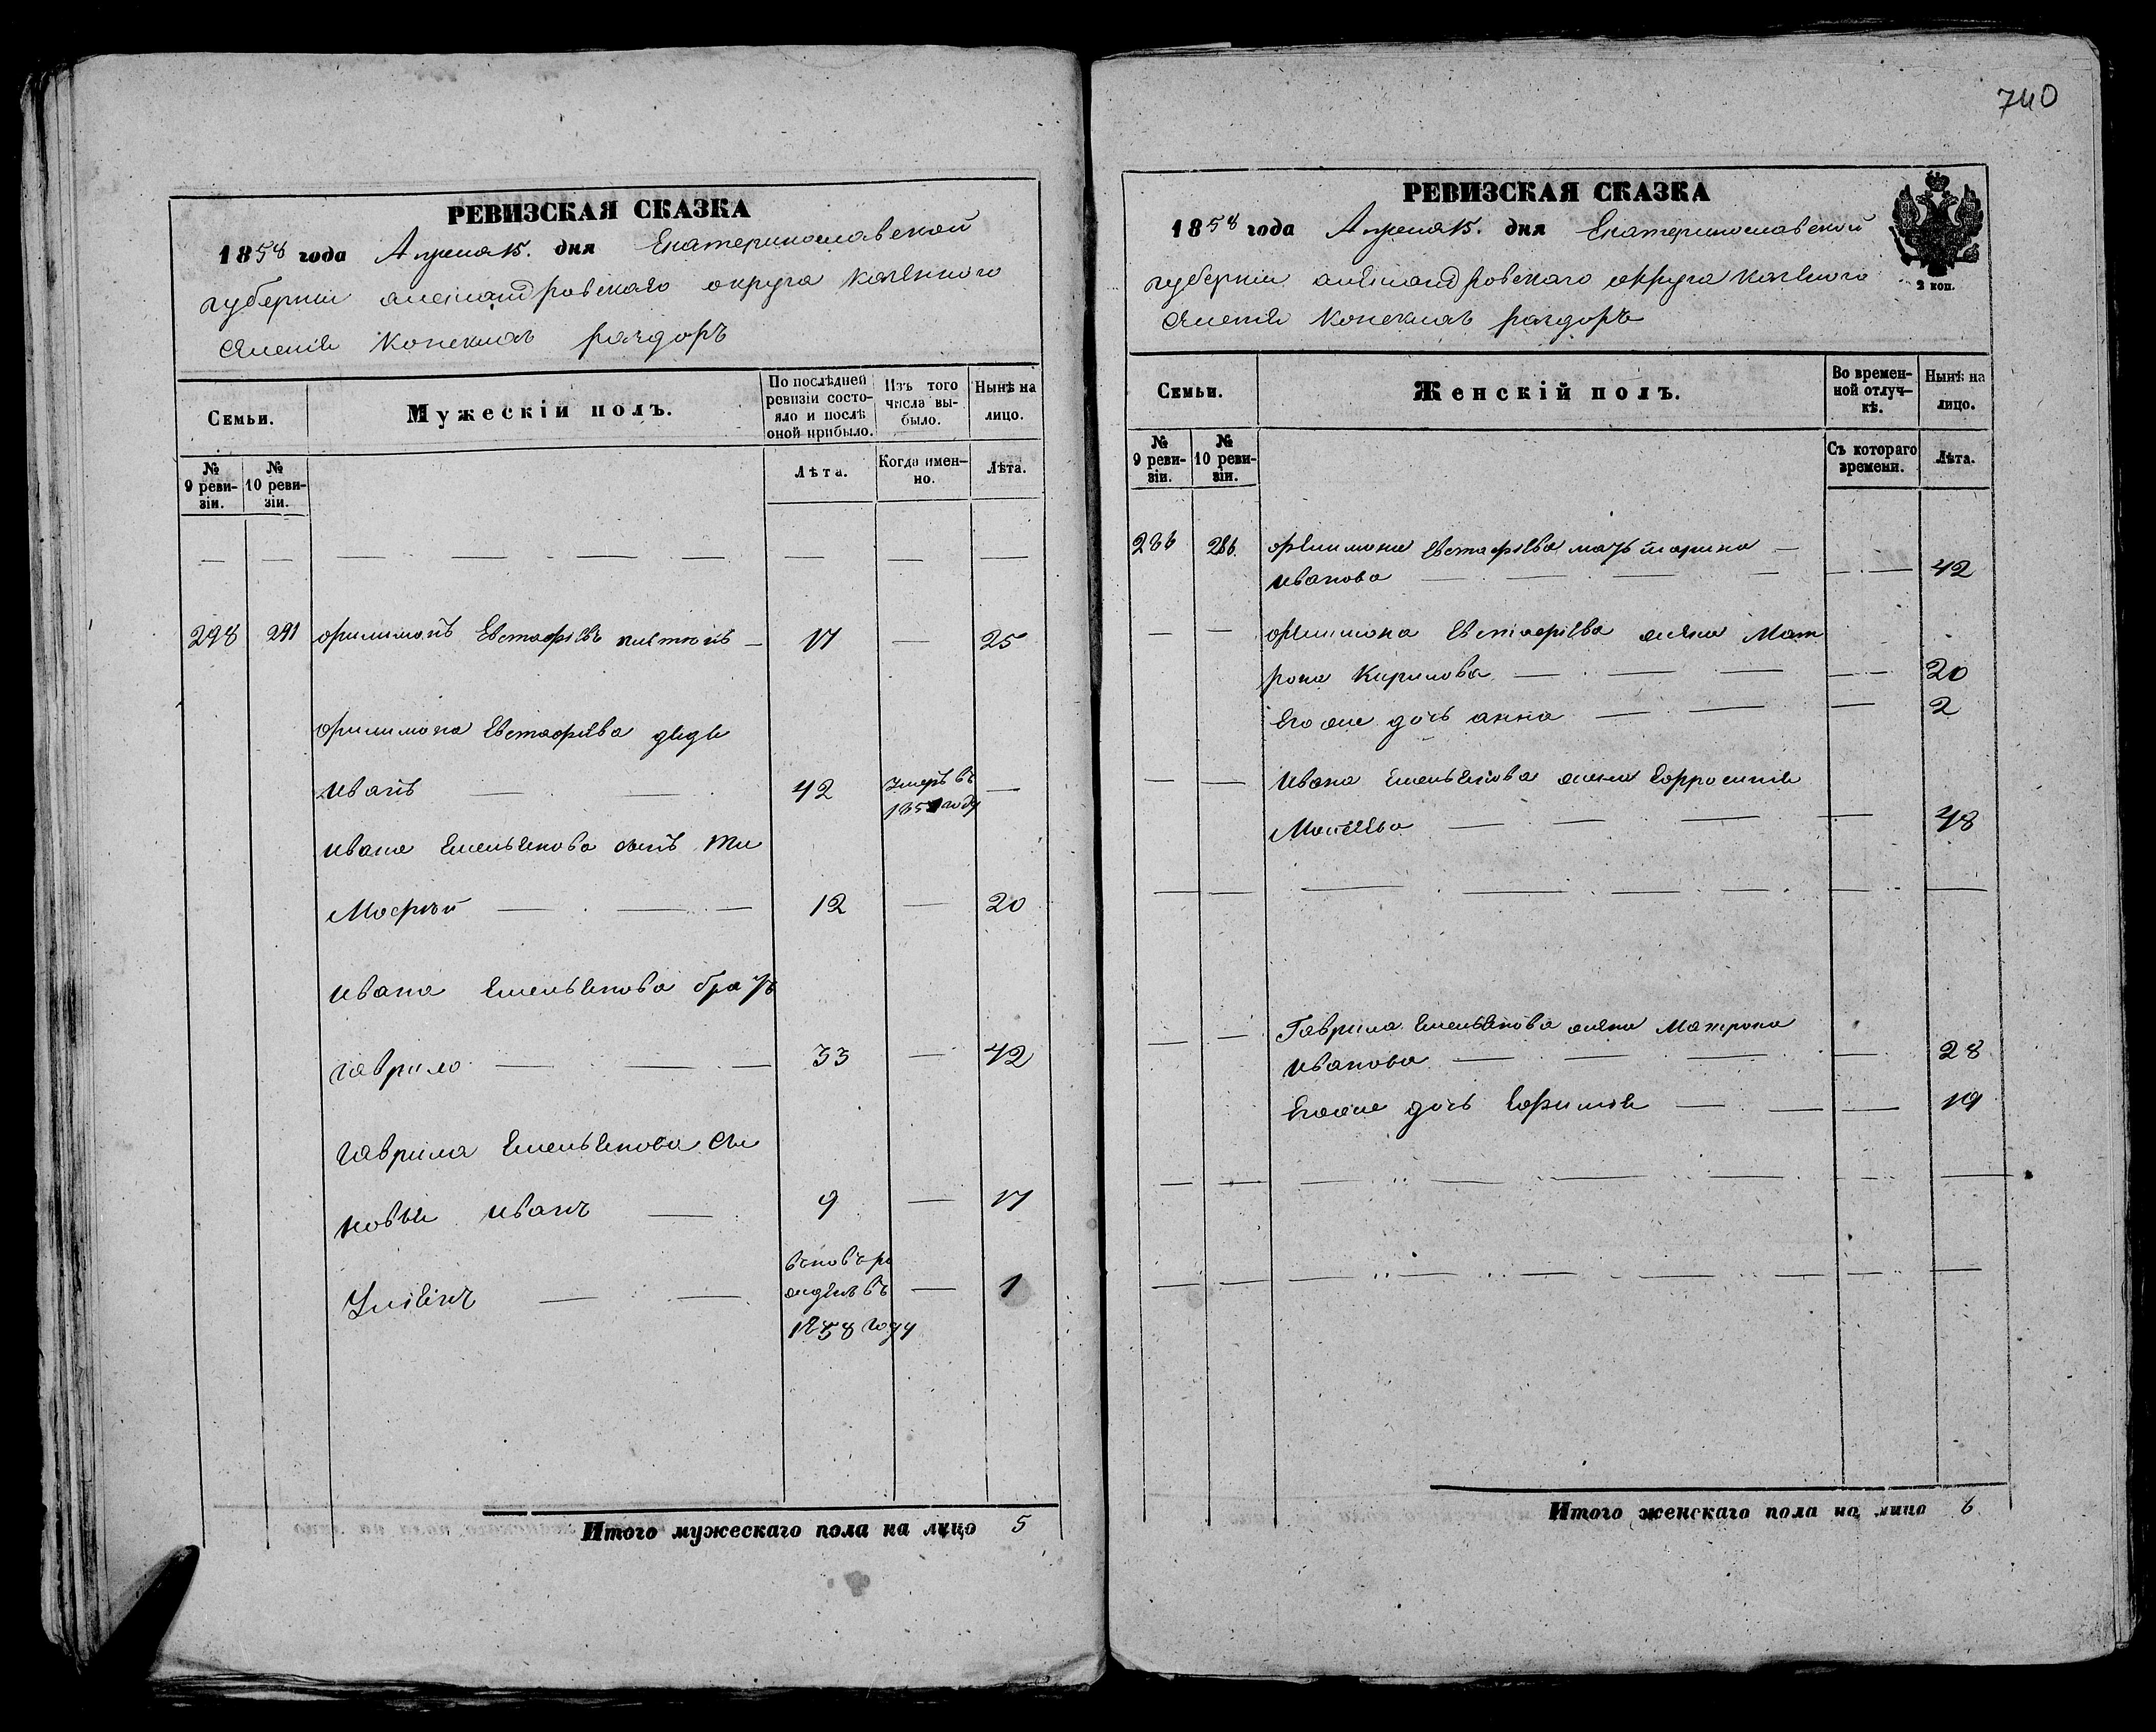 РЕВИЗСКАЯ СКАЗКА
1858 года Апреля 15. дня Екатеринославской
губернии александровскаго округа казеннаго
селенія Конскихъ раздоръ
Семьи.
Мужескій полъ.
По послѣдней ревизіи состояло и послѣ оной прибыло.
Изъ того числа выбыло.
Нынѣ на лицо.
№ 9 ревизіи.
№ 10 ревизіи.
Лѣта.
Когда именно.
Лѣта.
298 291 филимонъ Евстафіевъ — 17 — 25
филимона Евстафіева дядя
иванъ — — 42 Умеръ въ —
185 году
ивана Емельянова сынъ Ти
Мофѣй — — — 12 — 20
ивана Емельянова братъ
гаврило — — — 33 — 42
гаврила Емельянова сы
новья иванъ — 9 — 17
— — вновь ро
ждён въ — 1
1858 году
Итого мужескаго пола на лицо 5
740
РЕВИЗСКАЯ СКАЗКА
1858 года Апреля 15. дня Екатеринославской
губерніи александровскаго округа казеннаго
селенія Конскихъ раздоръ
2 коп.
Семьи.
Женскій полъ.
Во временной отлучкѣ.
Нынѣ на лицо.
№ 9 ревизіи.
№ 10 ревизіи.
Съ котораго времени.
Лѣта.
286 286. филимона Евстафіева мать марина —
иванова — — — — — — 42
— — филимона Евстафіева жена Мат
рона Кирилова — — — — — 20
Его же дочь анна — — — 2
— — ивана Емельянова жена Ефросинія
Моисеева — — — — — 48
— — Гаврила Емельянова жена Матрона
иванова — — — — 28
Его же дочь Ефимія — — — 19
Итого женскаго пола на лицо 6